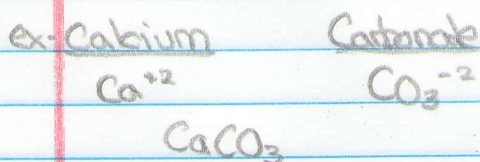 ex- Calcium Carbonate
Ca⁺² CO₃⁻²
CaCO₃